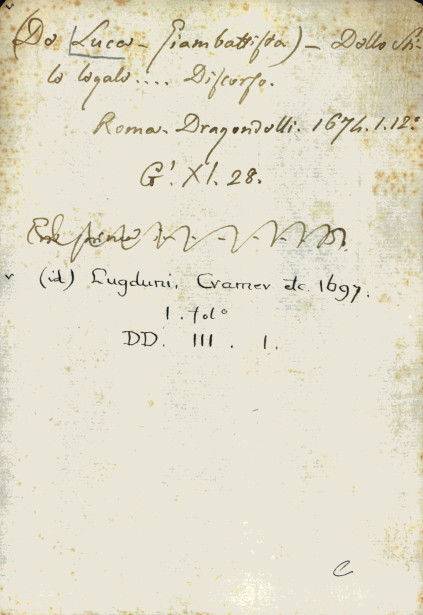 (De Luca - Giambattista) - Dello Sti-
lo legale.... Discorso.
Roma. Dragondelli. 1674. 1. 12°
G'. XI. 28.
(id) Lugduni. Cramer etc 1697.
1. fol°
DD. III. 1.
C